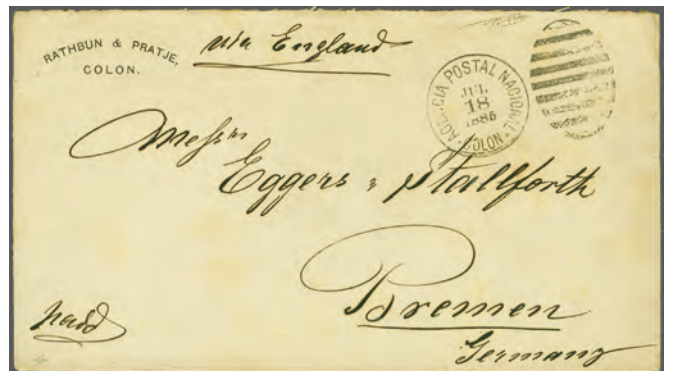 RATHBUN & PRATJE,
COLON.
via England
AGENCIA POSTAL NACIONAL
JUL
18
1885
COLON
Messrs
Eggers & Stallforth
Bremen
Germany
Paid